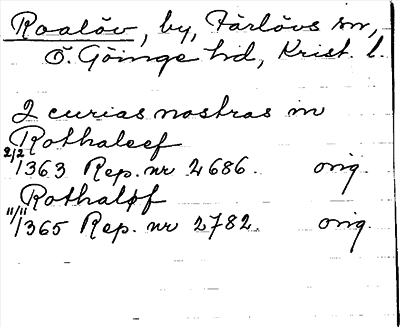 Roalöv, by, Färlövs sn,
Ö. Göinge hd, Krist. l.
2 curias nostras in
Rothaleef
2/2 1363 Rep. nr 2686. orig.
Rothaløf
11/11 1365 Rep. nr 2782. orig.